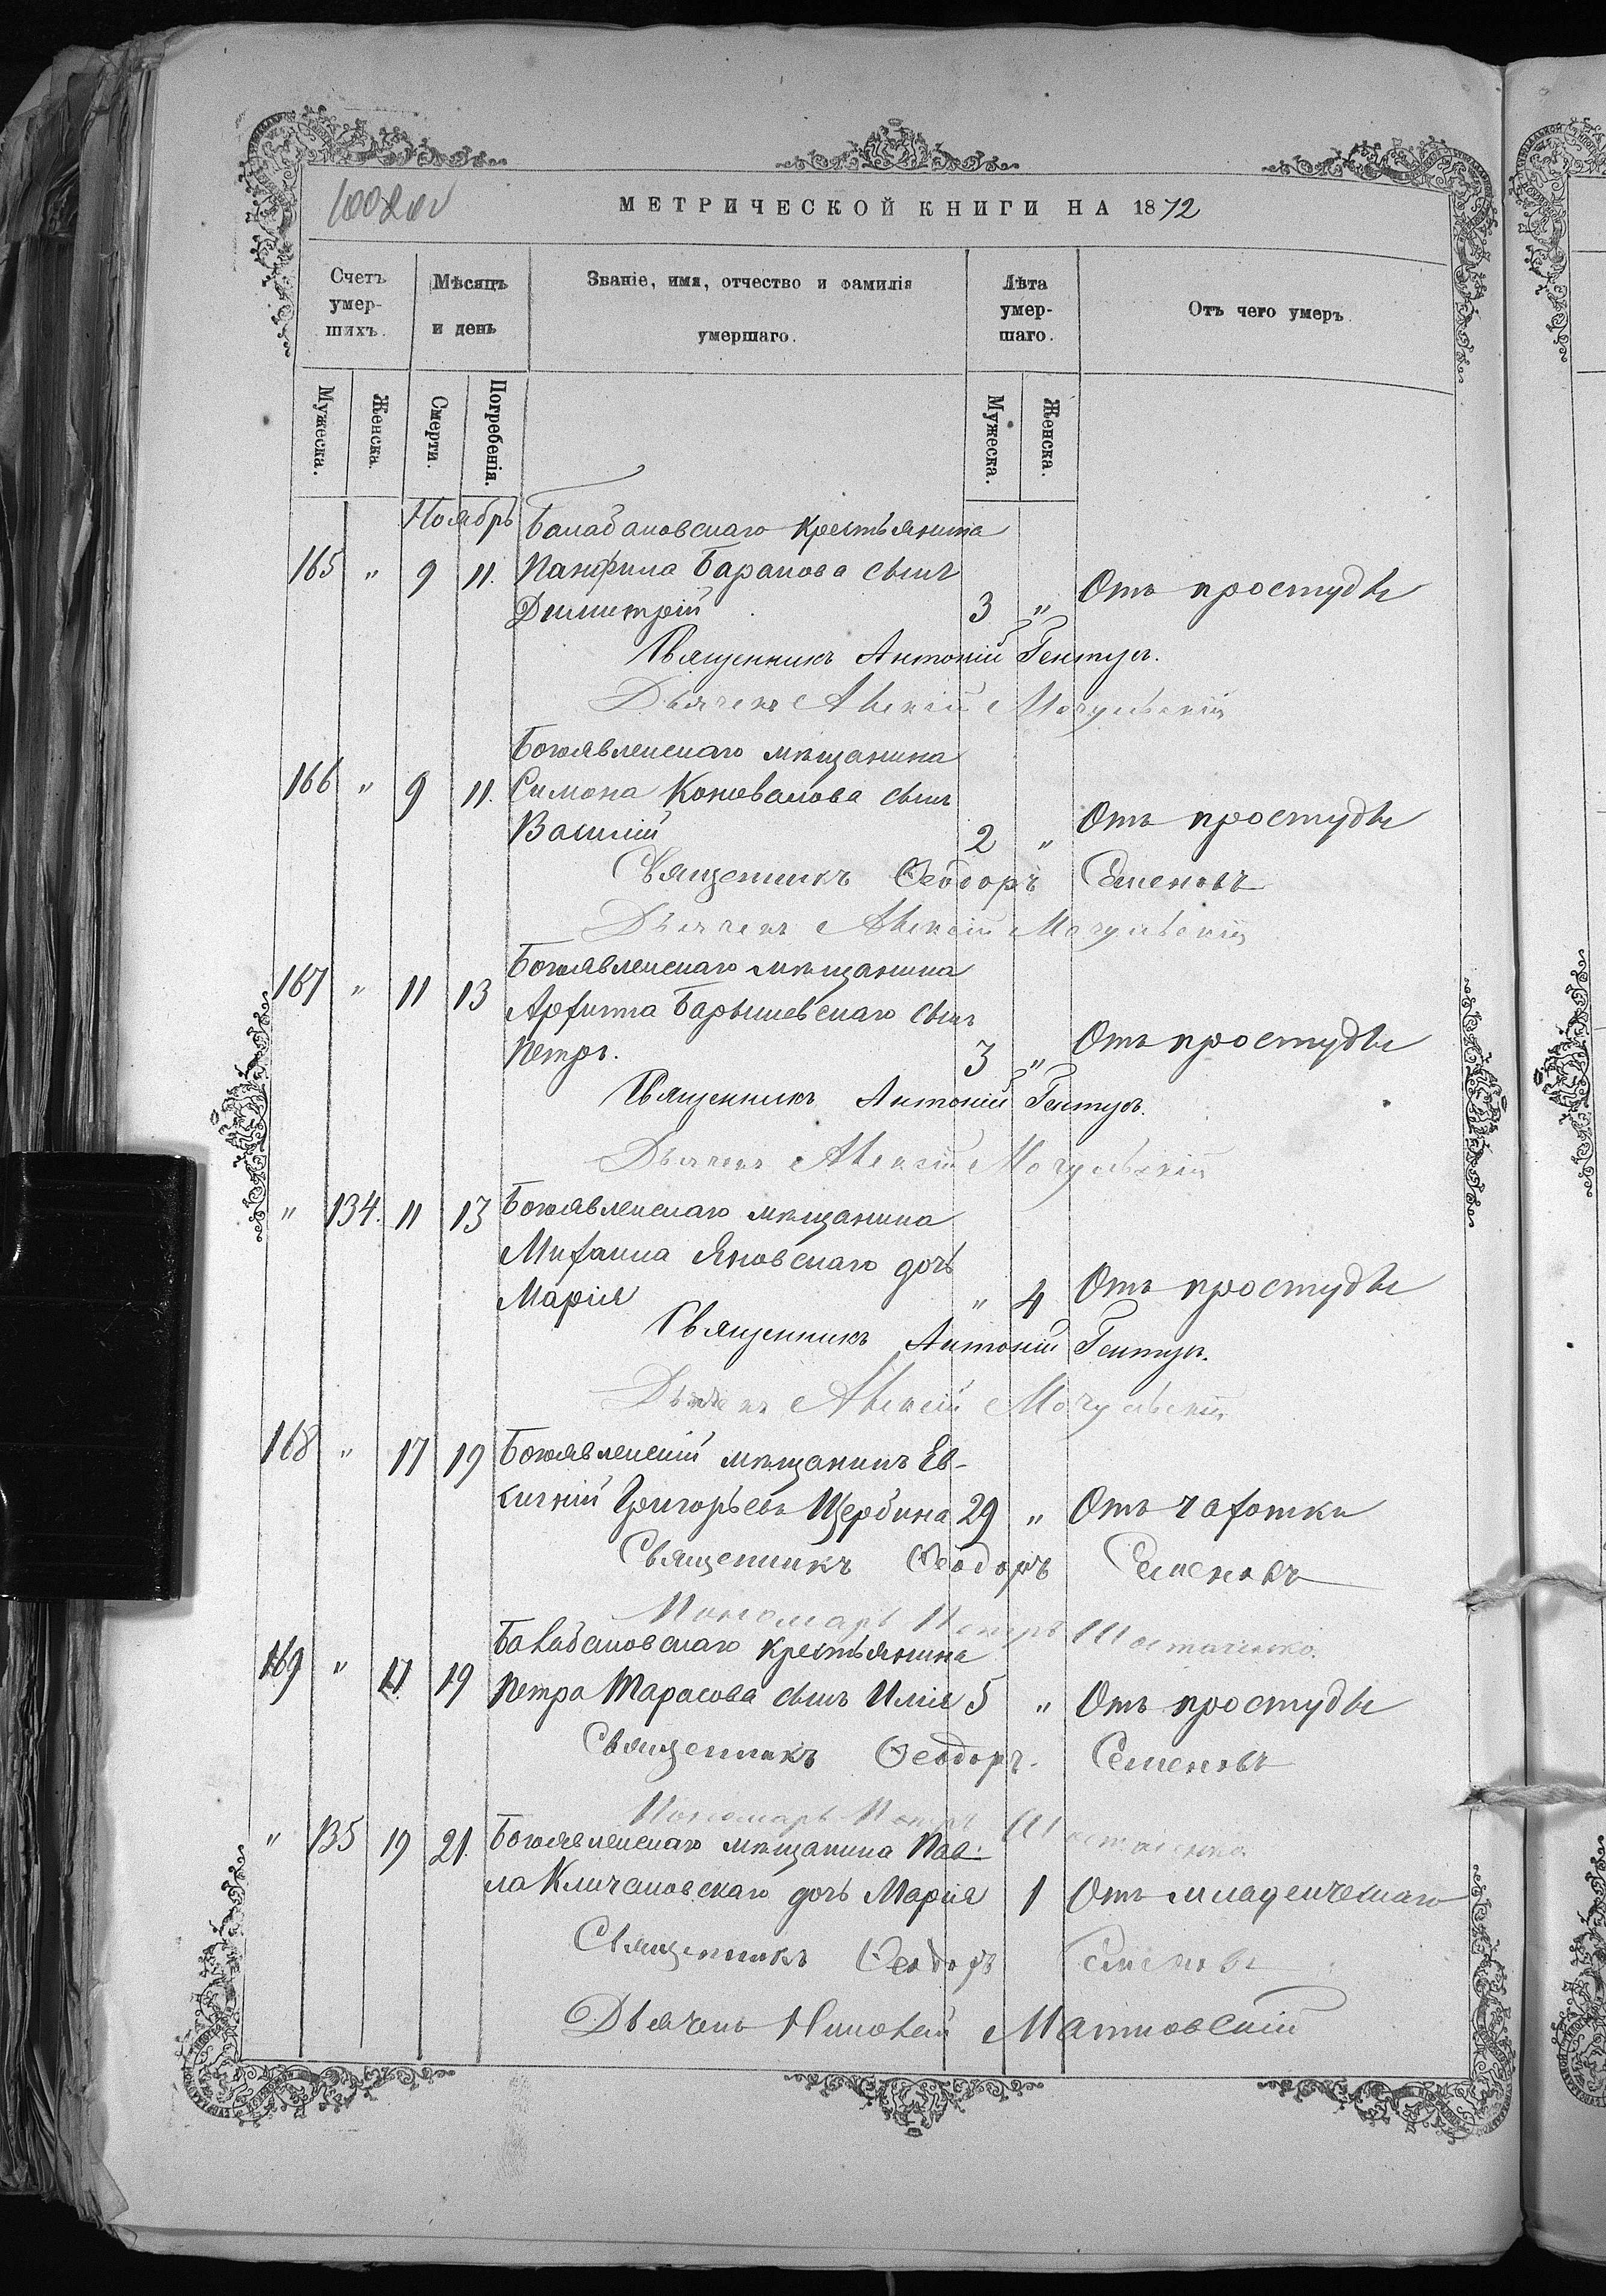 МЕТРИЧЕСКОЙ КНИГИ НА 1872
Счетъ умер-шихъ.
Мѣсяцъ и день
Званіе, имя, отчество и фамилія умершаго.
Лѣта умер-шаго.
Отъ чего умеръ
Мужеска.
Женска.
Смерти.
Погребенія.
Мужеска.
Женска.
Ноябрь
Балабановскаго крестьянина
165 " 9 11. Панфила Баранова сынъ
Димитрій 3 " Отъ простуды
Священникъ Антоній Гентуръ.
Дьячекъ Алексій Могульскій
Богоявленскаго мѣщанина
166 " 9 11. Симона Коновалова сынъ
Василій 2 " Отъ простуды
Священникъ Ѳеодоръ Семеновъ
Дьячекъ Алексій Могульскій
Богоявленскаго мѣщанина
167 " 11 13 Архиппа Барышевскаго сынъ
Петръ. 3 " Отъ простуды
Священникъ Антоній Гентуръ.
Дьячекъ Алексій Могульскій
" 134. 11 13 Богоявленскаго мѣщанина
Михаила Яновскаго дочь
Марія " 4 Отъ простуды
Священникъ Антоній Гентуръ.
Дьячекъ Алексій Могульскій
168 " 17 19 Богоявленскій мѣщанинъ Ев-
Григорьевъ Щербина 29 " Отъ чахотки
Священникъ Ѳеодоръ Семеновъ
Пономарь Петръ
Балабановскаго крестьянина
169 " 17 19 Петра Тарасова сынъ Илія 5 " Отъ простуды
Священникъ Ѳеодоръ Семеновъ
Пономарь Петръ
" 135 19 21. Богоявленскаго мѣщанина Пав-
ла Кличановскаго дочь Марія 1 Отъ младенческаго
Священникъ Ѳеодоръ Семеновъ
Дьячекъ